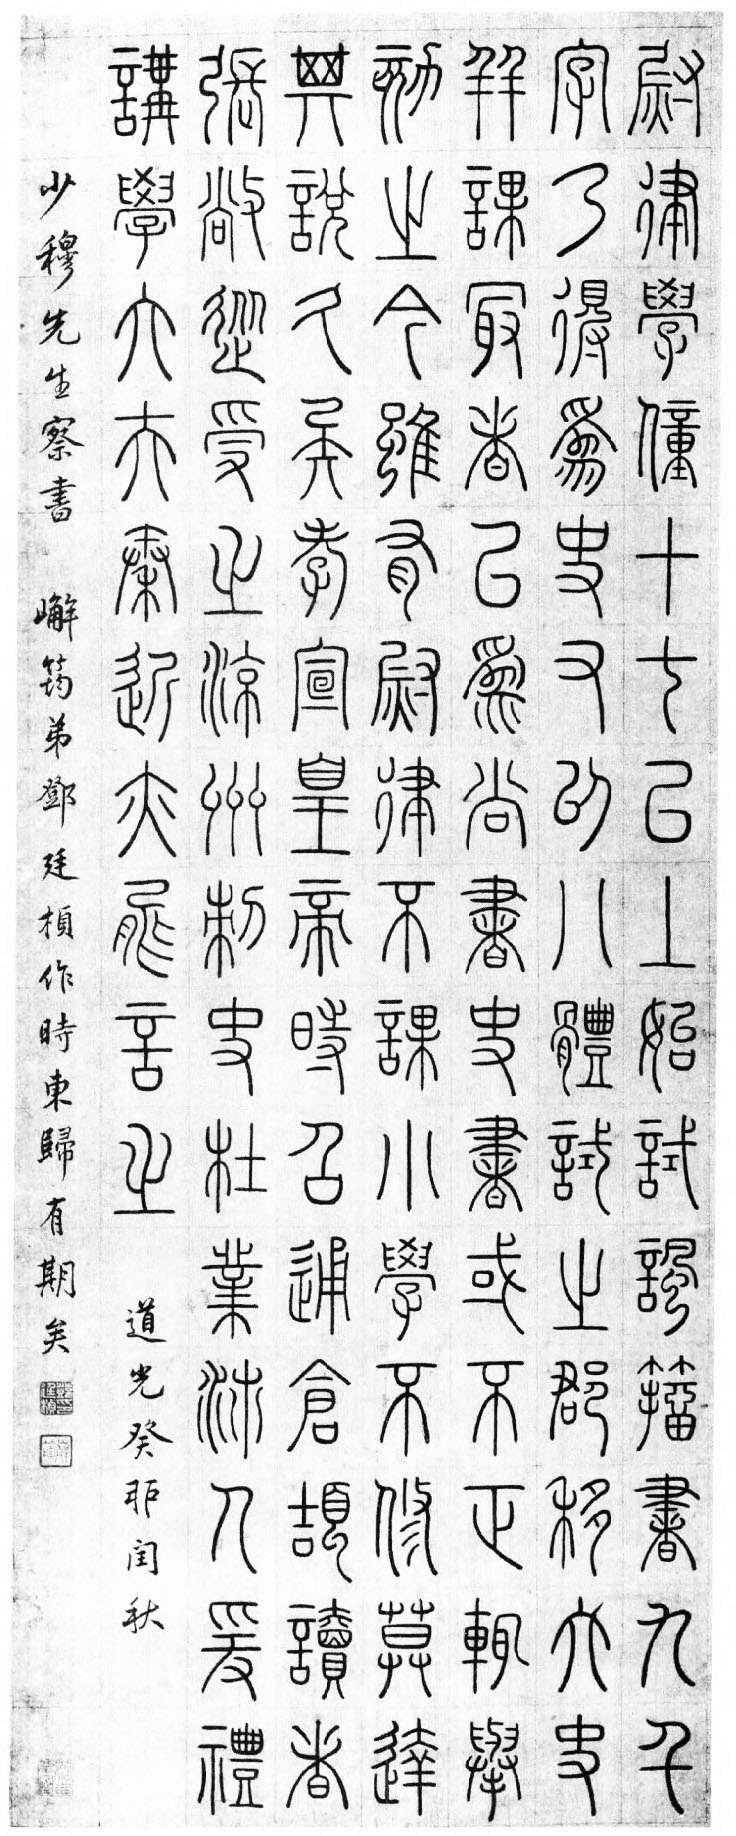 尉律學僮十七已上始試諷籀書九千
字乃得爲吏又以八體試之郡移大史
并課最者以爲尚書史書或不正輒舉
劾之今雖有尉律不課小學不修莫達
其說久矣孝宣皇帝時召通倉頡讀者
張敞從受之涼州刺史杜業沛人爰禮
講學大夫秦近亦能言之 道光癸卯閏秋
少穆先生察書 嶰筠弟鄧廷楨作時東歸有期矣